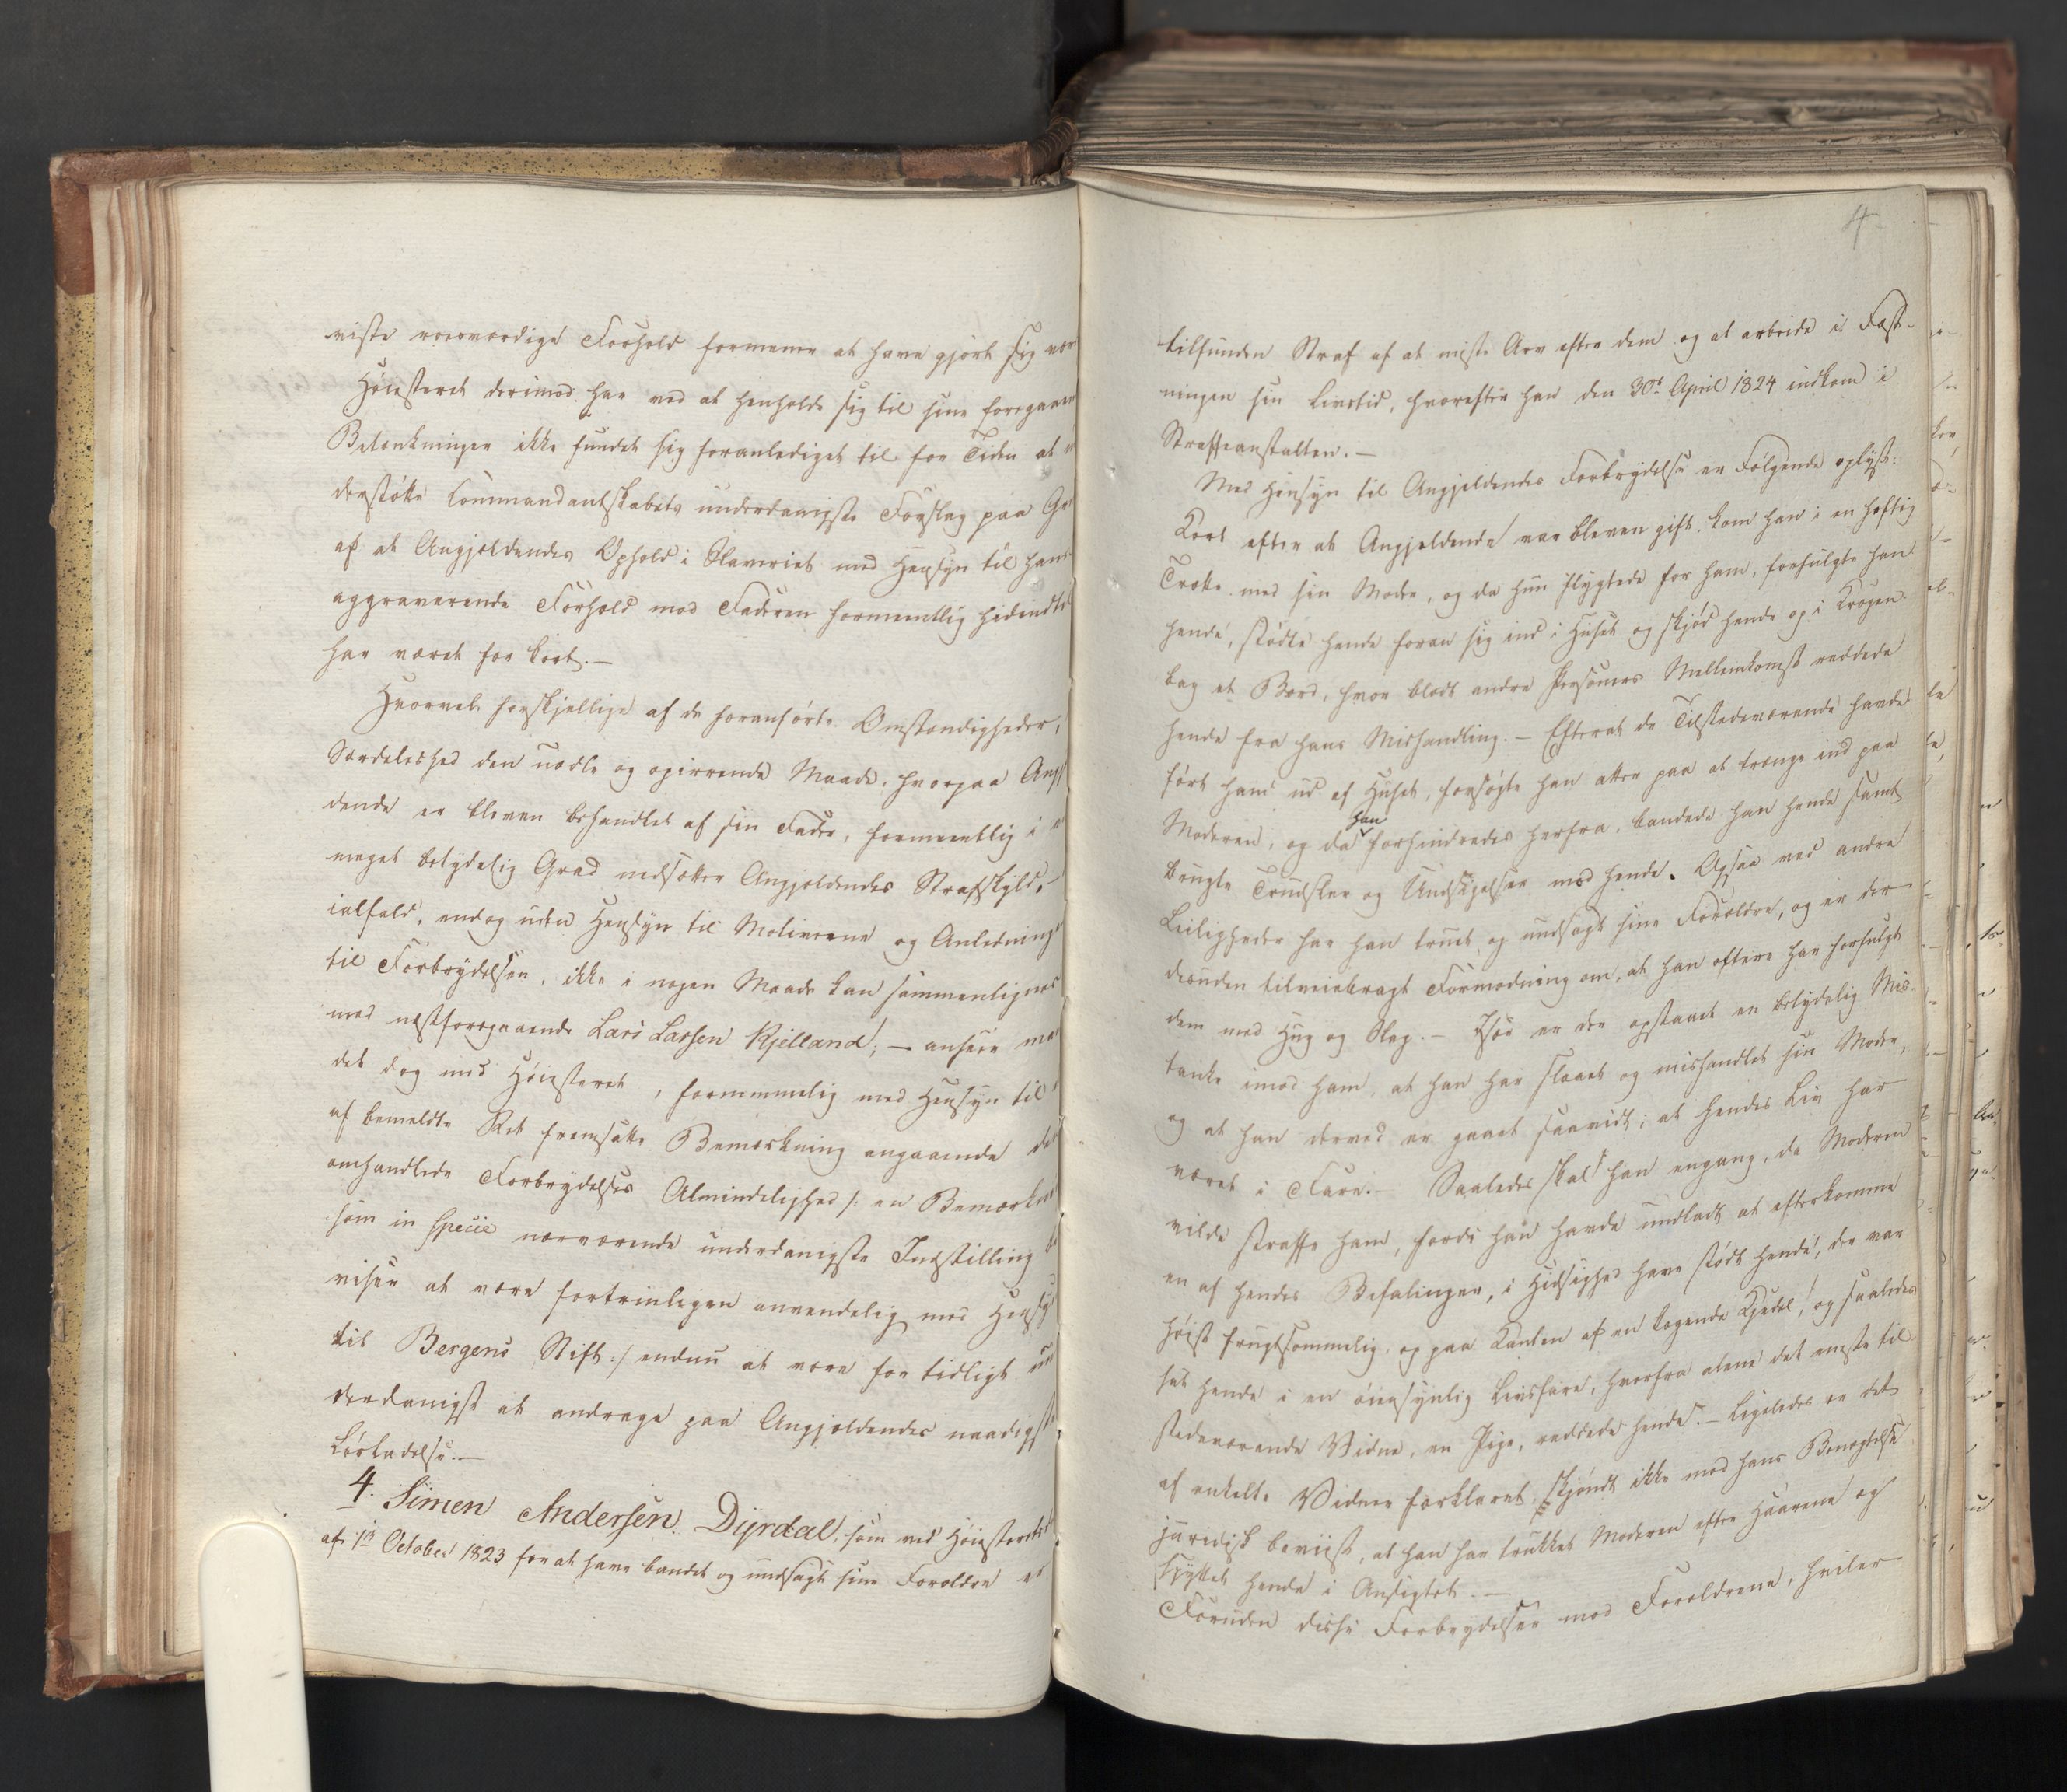 viste roesværdige Forhold formener at have gjort sig vær
Høiesteret derimod har ved at henholde sig til sine foregaaen
Betænkninger ikke fundet sig foranlediget til for Tiden at u
derstøtte Commandantskabets underdanigste Forslag paa Gr
af at Angjældendes Ophold i Slaveriet med Hensyn til hans
aggraverende Forhold mod Faderen formeentlig hidindtil
har været for kort.—
Hvorvel forskjellige af de foranførte Omstændigheder, i
Særdeleshed den uædle og opirrende Maade, hvorpaa Angj
dende er bleven behandlet af sin Fader, formeentlig i e
meget betydelig Grad nedsætter Angjældendes Strafskyld,
ialfald, endog uden Hensyn til Motiverne og Anledninge
til Forbrydelsen, ikke i nogen Maade kan sammenlignes
med næstforegaaende Lars Larsen Kjelland; — ansees ma
det dog med Høiesteret, fornemmelig med Hensyn til
af bemeldte Ret fremsatte Bemærkning angaaende de
omhandlede Forbrydelses Almindelighed /: en Bemærkn
som in specie nærværende underdanigste Indstilling be
viser at være fortrinligen anvendelig med Hensy
til Bergens Stift :/ endnu at være for tidligt un
derdanigst at andrage paa Angjældendes naadigst
Løsladelse.—
4. Simen Andersen Dyrdal, som ved Høiesterets
af 1ste October 1823 for at have bandet og undsagt sine Forældre er
4
tilfunden Straf af at miste Arv efter dem og at arbeide i Fæst-
ningen sin Livstid, hvorefter han den 30te April 1824 indkom i
Straffeanstalten.—
Med Hensyn til Angjældendes Forbrydelse er Følgende oplyst:
Kort efter at Angjældende var bleven gift, kom han i en heftig
Trætte med sin Moder, og da hun flygtede for ham, forfulgte han
hende, stødte hende foran sig ind i Huset og skjød hende op i Krogen
bag et Bord, hvor blot andre Personers Mellemkomst reddede
hende fra hans Mishandling.— Efterat de Tilstedeværende havde
ført ham ud af Huset, forsøgte han atter paa at trænge ind paa
Moderen, og da han forhindredes herfra, bandede han hende samt
brugte Trudsler og Undsigelser mod hende. Ogsaa ved andre
Leiligheder har han truet og undsagt sine Forældre, og er der
desuden tilveiebragt Formodning om, at han oftere har forfulgt
dem med Hug og Slag.— Især er der opstaaet en betydelig Mis-
tanke imod ham, at han har slaaet og mishandlet sin Moder,
og at han derved er gaaet saavidt, at hendes Liv har
været i Fare.— Saaledes skal han engang, da Moderen
vilde straffe ham, fordi han havde undladt at efterkomme
en af hendes Befalinger, i Hidsighed have stødt hende, der var
høist frugtsommelig, op paa Kanten af en kogende Kjedel, og saaledes
sat hende i en øiensynlig Livsfare, hvorfra alene det eneste til-
stedeværende Vidne, en Pige, reddede hende.— Ligeledes er det
af enkelte Vidner forklaret, skjøndt ikke mod hans Benægtelse
juridisk beviist, at han har trukket Moderen efter Haarene og
spyttet hende i Ansigtet.—
Foruden disse Forbrydelser mod Forældrene, hviler